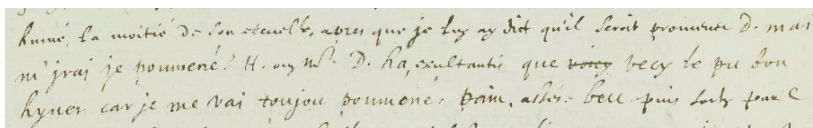 humé, la moitié de son escuelle, apres que je luy ay dict qu'il seroit proumené D. mai
m'jrai je poumené? H. ouy Mr. D. ha, exultantis que voicy vecy le pu bon
hyver car je me vai toujou poumené. pain, assés. beu puis